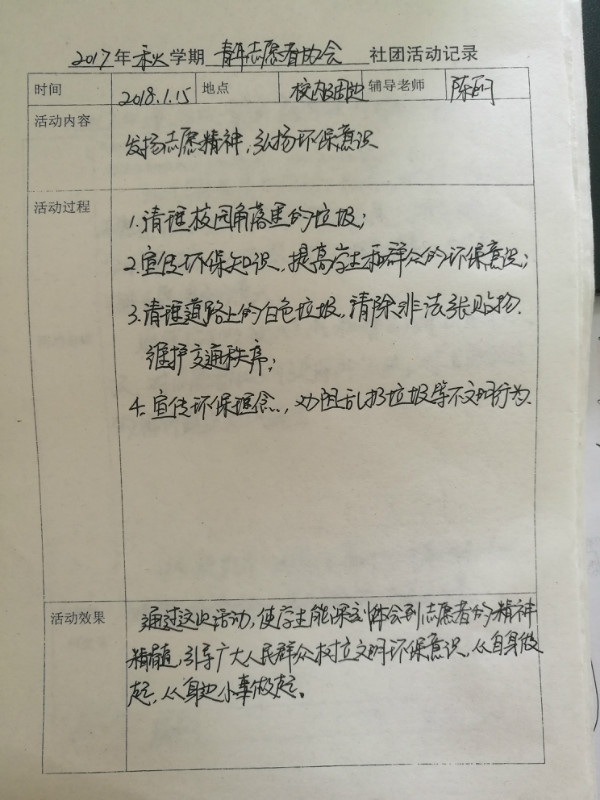 2017年秋学期 青年志愿者协会 社团活动记录
时间 2018.1.15 地点 校内及周边 辅导老师 陈
活动内容 发扬志愿精神,弘扬环保意识
活动过程
1.清理校园角落里的垃圾;
2.宣传环保知识,提高学生和群众的环保意识;
3.清理道路上的白色垃圾,清除非法张贴物.
维护交通秩序;
4.宣传环保理念,劝阻乱扔垃圾等不文明行为.
活动效果 通过这次活动,使学生能深刻体会到志愿者的精神
精髓,引导广大人民群众树立文明环保意识,从自身做
起,从身边小事做起。